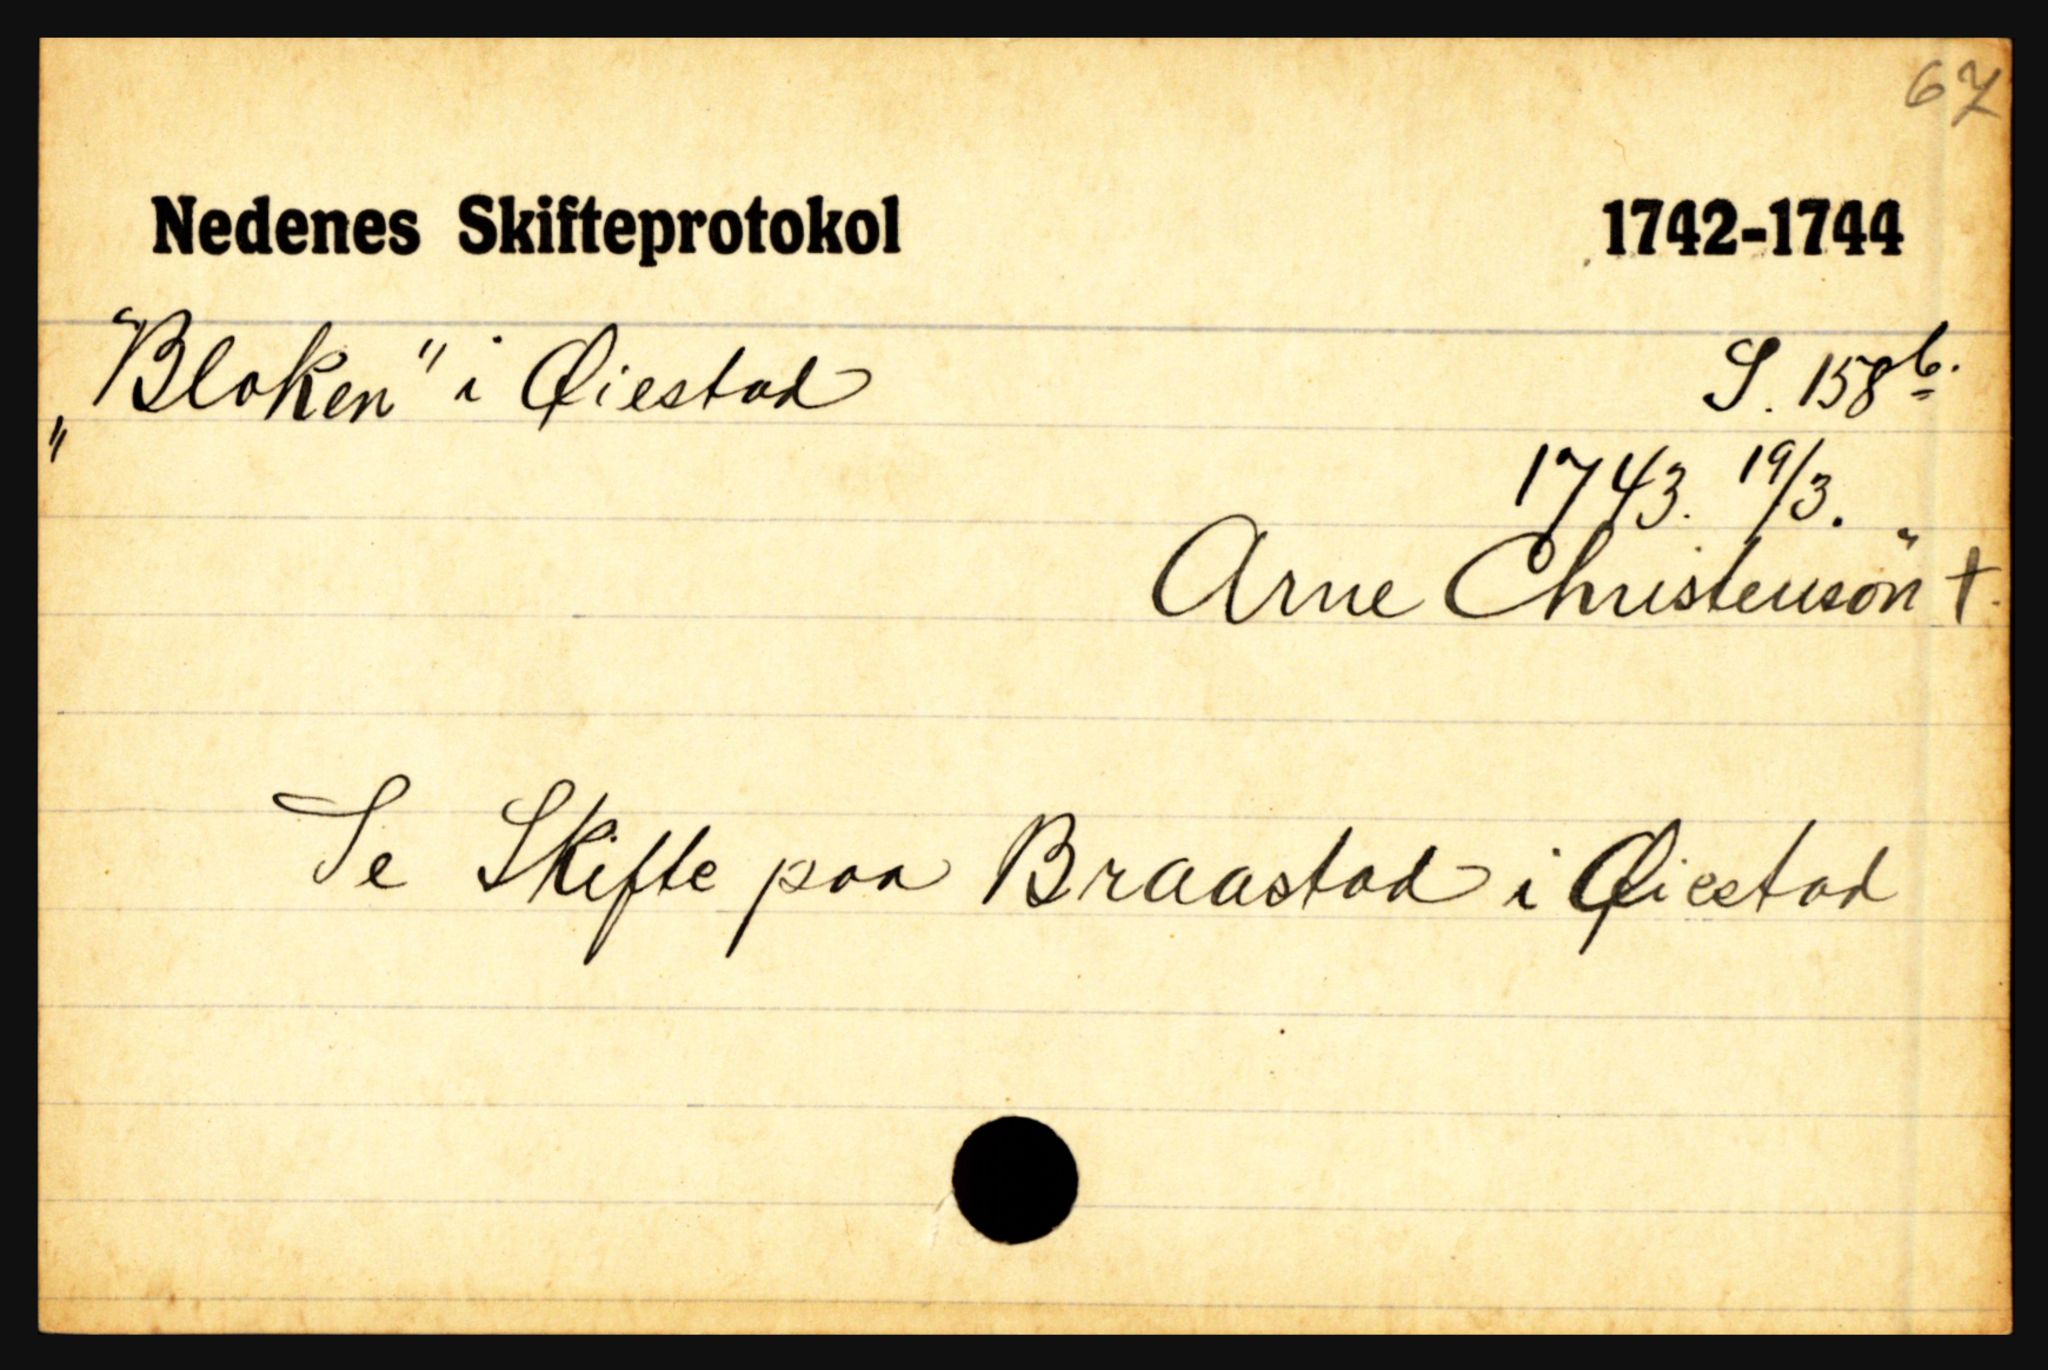 67
Nedenes Skifteprotokol 1742-1744
„Bloken" i Øiestad S. 158 b.
1743. 19/3.
Arne Christensön †.
Se Skifte paa Braastad i Øiestad